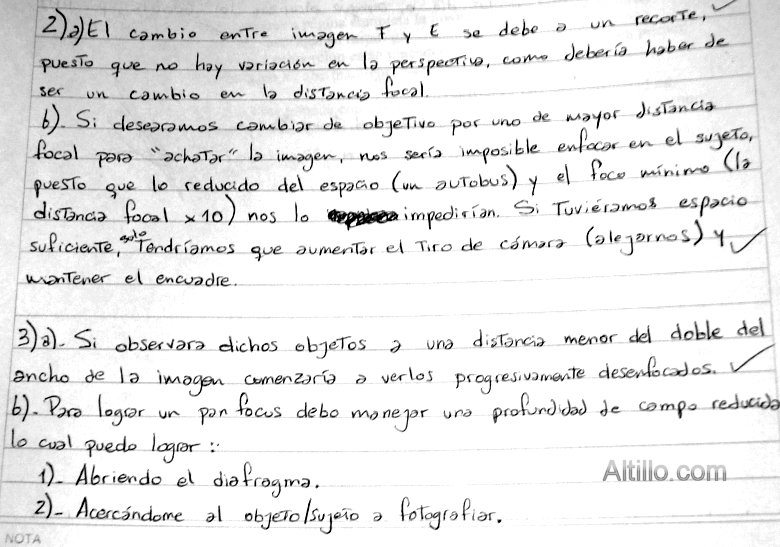 2) a) El cambio entre imagen F y E se debe a un recorte,
puesto que no hay variación en la perspectiva, como debería haber de
ser un cambio en la distancia focal.
b).- Si desearamos cambiar de objetivo por uno de mayor distancia
focal para "achatar" la imagen, nos sería imposible enfocar en el sujeto,
puesto que lo reducido del espacio (un autobus) y el foco mínimo (la
distancia focal x10) nos lo impedirían. Si Tuviéramos espacio
suficiente, solo Tendríamos que aumentar el Tiro de cámara (alejarnos) y
mantener el encuadre.
3) a).- Si observara dichos objetos a una distancia menor del doble del
ancho de la imagen comenzaría a verlos progresivamente desenfocados.
b).- Para lograr un pan focus debo manejar una profundidad de campo reducida
lo cual puedo lograr:
1)- Abriendo el diafragma.
2)- Acercándome al objeto/sujeto a fotografiar.
Altillo.com
NOTA